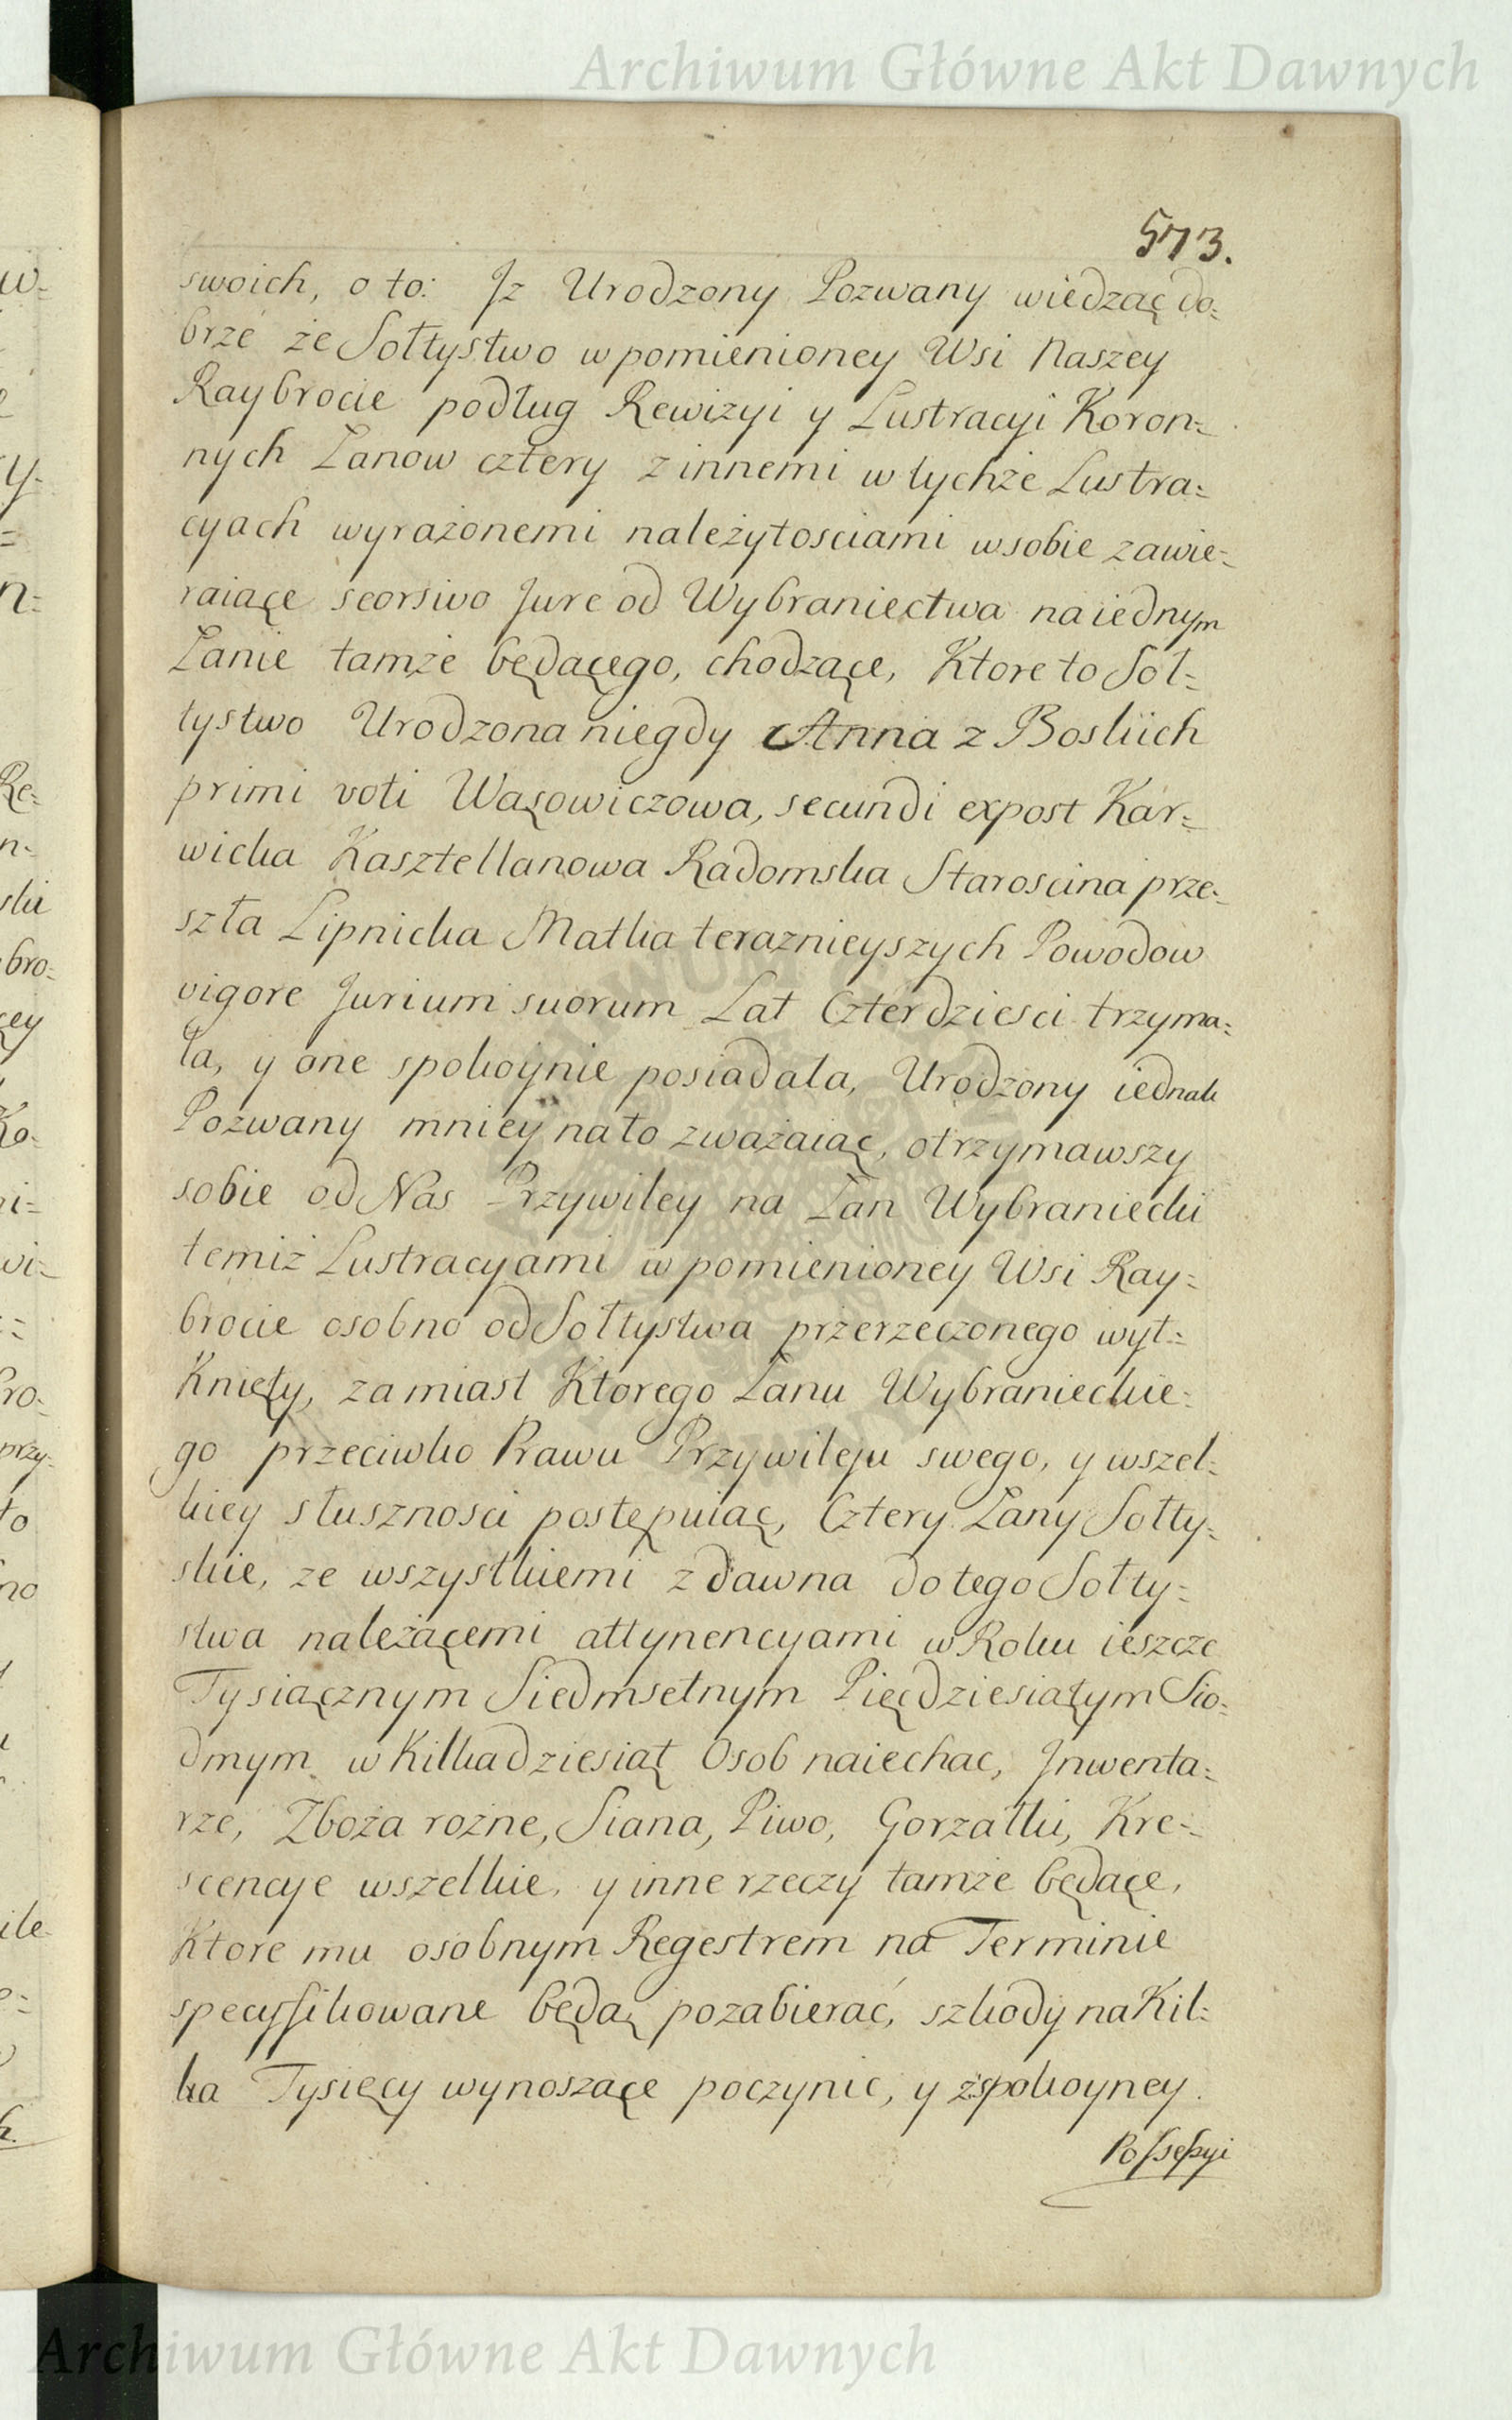 Archiwum Główne Akt Dawnych
573.
swoich, o to: Jz Urodzony Pozwany wiedząc do=
brze że Sołtystwo w pomienioney Wsi Naszey
Raybrocie podług Rewizyi y Lustracyi Koron=
nych Łanow cztery z innemi w tychże Lustra=
cyach wyrażonemi należytosciami w sobie zawie=
raiące seorsivo Jure od Wybraniectwa na iednym
Łanie tamże będącego, chodzące, Ktore to Soł=
tystwo Urodzona niegdy Anna z Boskich
primi voti Wąsowiczowa, secundi expost Kar=
wicka Kasztellanowa Radomska Staroscina prze=
szła Lipnicka Matka teraznieyszych Powodow
vigore Jurium suorum Lat Czterdziesci trzyma=
ła, y one spokoynie posiadała, Urodzony iednak
Pozwany mniey na to zważaiąc, otrzymawszy
sobie od Nas Przywiley na Łan Wybraniecki
temiż Lustracyami w pomienioney Wsi Ray=
brocie osobno od Sołtystwa przerzeczonego wyt=
Knięty, zamiast Ktorego Łanu Wybranieckie=
go przeciwko Prawu Przywileju swego, y wszel=
kiey słusznosci postępuiąc, Cztery Łany Sołty=
skie, ze wszystkiemi z dawna do tego Sołty=
stwa należącemi attynencyami w Roku ieszcze
Tysiącznym Siedmsetnym Pięćdziesiątym Sio=
dmym w Kilkadziesiąt Osob naiechac, Jnwenta=
rze, Zboża rożne, Siana, Piwo, Gorzałki, Kre=
scencye wszelkie, y inne rzeczy tamże będące,
Ktore mu osobnym Regestrem na Terminie
specyffikowane będą, pozabierać, szkody na Kil=
ka Tysięcy wynoszące poczynic, y z spokoyney
Possessyi
Archiwum Główne Akt Dawnych